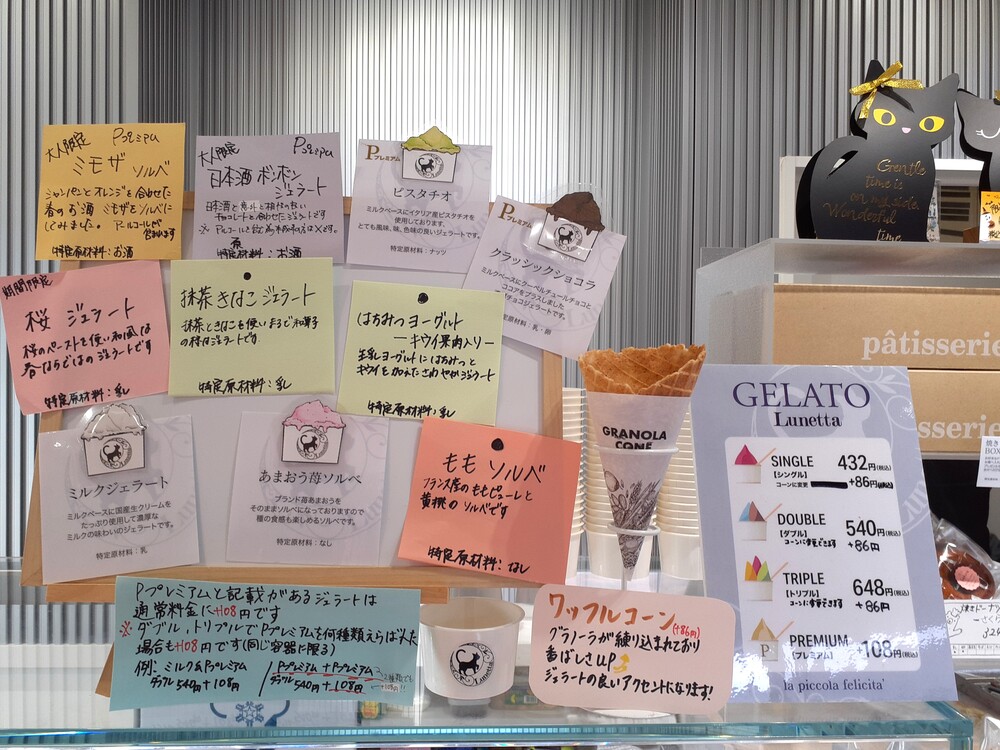 大人限定 Pプレミアム
ミモザ ソルベ
シャンパンとオレンジを合わせた
春のお酒 ミモザをソルベに
してみました。 アルコールが
含れます
特定原材料：お酒
大人限定 Pプレミアム
日本酒ボンボン
ジェラート
日本酒と意外と相性の良い
チョコレートと合わせたジェラートです
特定原材料：お酒
Pプレミアム
ピスタチオ
ミルクベースにイタリア産ピスタチオを
使用しております。
とても風味、味、色味の良いジェラートです。
特定原材料：ナッツ
Pプレミアム
クラッシックショコラ
ミルクベースにクーベルチュールチョコと
ココアをプラスしました
チョコジェラートです。
特定原材料：乳・卵
期間限定
桜 ジェラート
桜のペーストを使い和風な
春ならではのジェラートです
特定原材料：乳
抹茶きなこジェラート
抹茶ときなこを使いまるで和菓子
の様なジェラートです。
特定原材料：乳
はちみつヨーグルト
ーキウイ果肉入りー
生乳ヨーグルトにはちみつと
キウイを加えたさわやかジェラート
特定原材料：乳
ミルクジェラート
ミルクベースに国産生クリームを
たっぷり使用して濃厚な
ミルクの味わいのジェラートです。
特定原材料：乳
あまおう苺ソルベ
ブランド苺あまおうを
そのままソルベになっておりますので
種の食感も楽しめるソルベです。
特定原材料：なし
もも ソルベ
フランス産のももピューレと
黄桃の ソルベです
特定原材料：なし
Pプレミアムと記載があるジェラートは
通常料金に+108円です
※ダブル、トリプルでPプレミアムを何種類えらばれた
場合も+108円です(同じ容器に限る)
例：ミルク&Pプレミアム
ダブル540円+108円
Pプレミアム+Pプレミアム
ダブル540円+108円
Lunetta
GRANOLA
CONE
ワッフルコーン(+86円)
グラノーラが練り込まれており
香ばしさUP
ジェラートの良いアクセントになります!
GELATO
Lunetta
SINGLE 432円(税込)
【シングル】
コーンに変更 +86円(税込)
DOUBLE 540円(税込)
【ダブル】
コーンに変更できます +86円
TRIPLE 648円(税込)
【トリプル】
コーンに変更できます +86円
P PREMIUM +108円(税込)
【プレミアム】
la piccola felicita'
Gentle
time is
on my side.
Wonderful
time.
pâtisserie
sserie
焼き
BOX